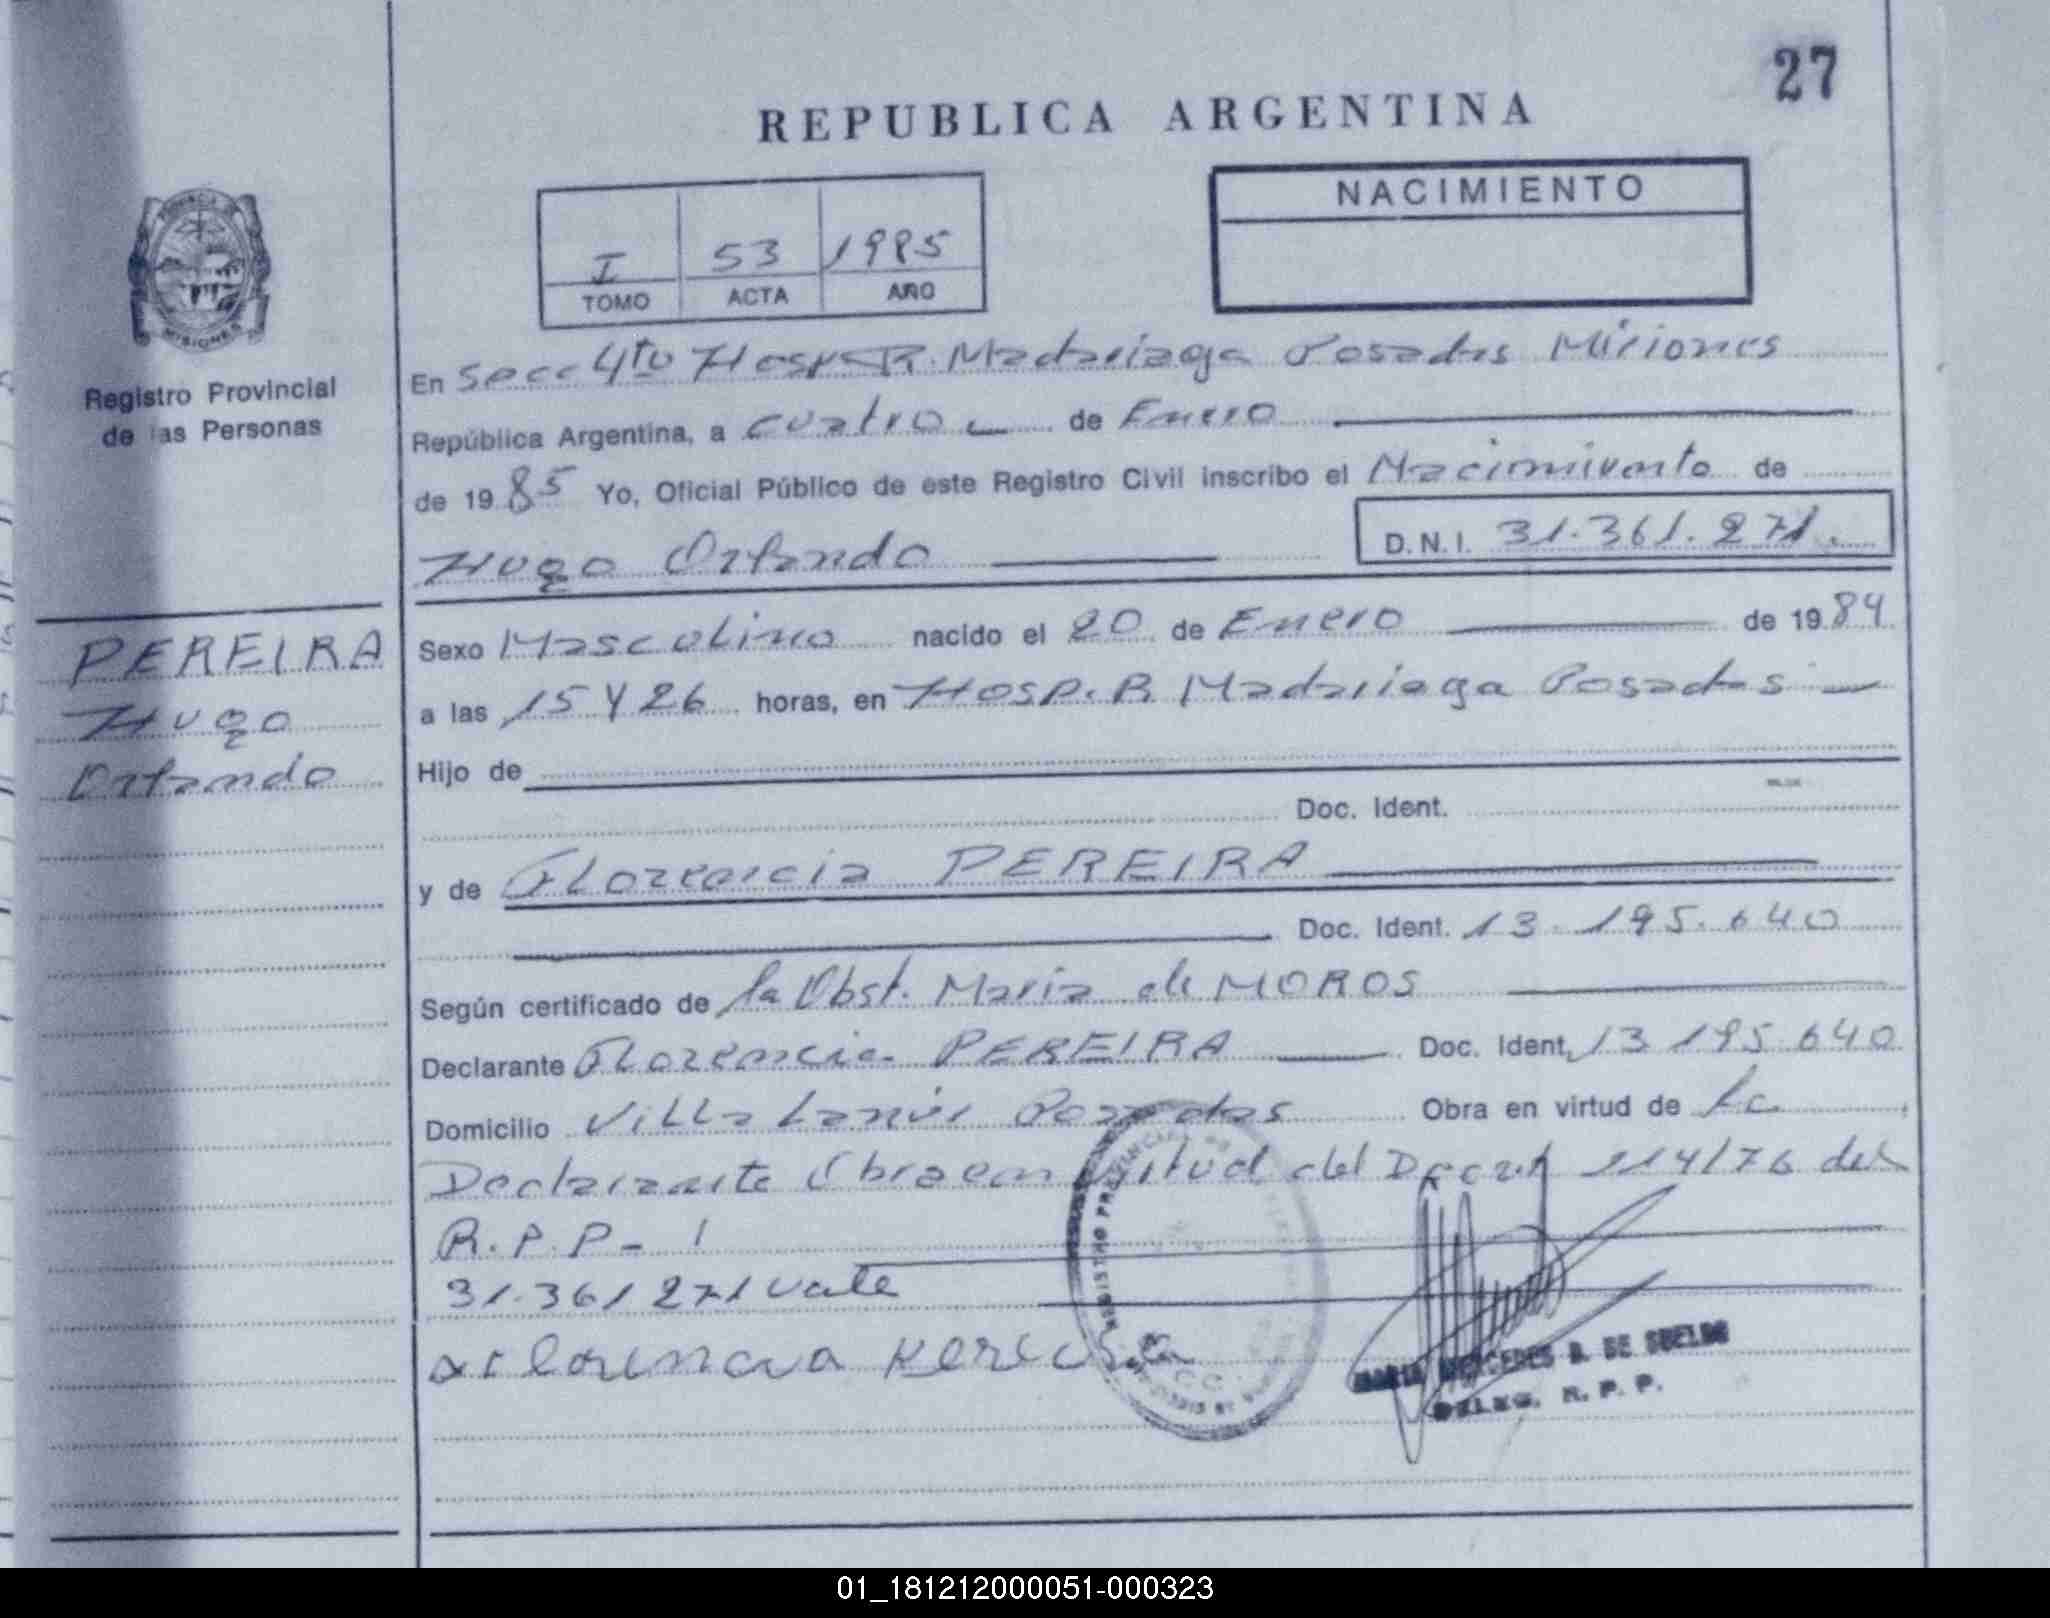 27
REPUBLICA ARGENTINA
NACIMIENTO
I 53 1985
TOMO ACTA AÑO
PROVINCIA DE
MISIONES
Registro Provincial
de las Personas
En Secc 4to Hosp R. Madariaga Posadas Misiones
República Argentina, a cuatro de Enero
de 19 85 Yo, Oficial Público de este Registro Civil inscribo el Nacimiento de
Hugo Orlando D.N.I. 31.361.271.
PEREIRA
Hugo
Orlando
Sexo Masculino nacido el 20 de Enero de 19 84
a las 15 y 26 horas, en Hosp. R Madariaga Posadas
Hijo de
Doc. Ident.
y de Florencia PEREIRA
Doc. Ident. 13.195.640
Según certificado de la Obst. Maria de MOROS
Declarante Florencia PEREIRA Doc. Ident. 13 195.640
Domicilio Villa Lanús Posadas Obra en virtud de La
Declarante Obra en virtud del Decret 114/76 del
R.P.P.- 1
31.361 271 vale
Florencia Pereira
REGISTRO PROVINCIAL DE
MARIA MERCEDES B. DE SUELDO
DELEG. R. P. P.
01_181212000051-000323